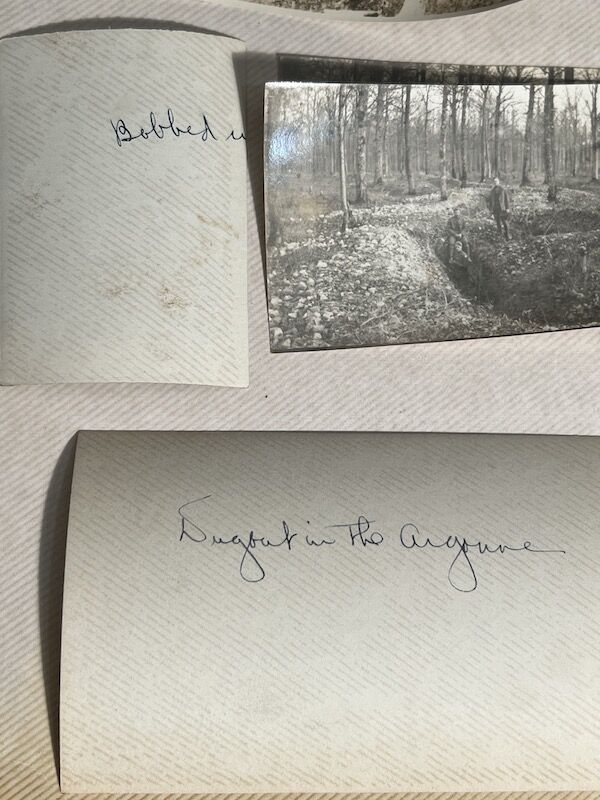 Bobbed
Dugout in the Argonne